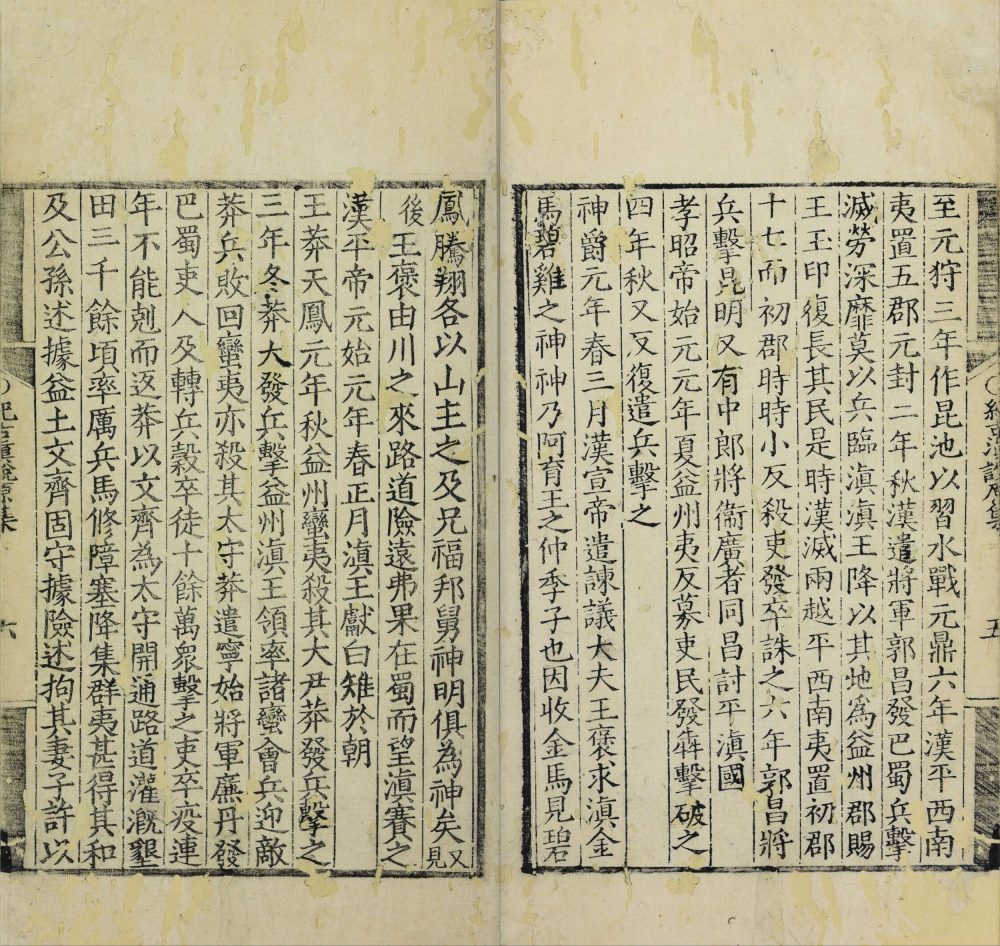 至元狩三年作昆池以習水戰元鼎六年漢平西南
夷置五郡元封二年秋漢遣將軍郭昌發巴蜀兵擊
滅勞深靡莫以兵臨滇滇王降以其地為益州郡賜
王王印復長其民是時漢滅兩越平西南夷置初郡
十七而初郡時時小反殺吏發卒誅之六年郭昌將
兵擊昆明又有中郎將衞廣者同昌討平滇國
孝昭帝始元元年夏益州夷反募吏民發犇擊破之
四年秋又反復遣兵擊之
神爵元年春三月漢宣帝遣諫議大夫王褒求滇金
馬碧雞之神神乃阿育王之仲季子也因收金馬見碧
五
鳳騰翔各以山主之及兄福邦舅神明俱為神矣又見
後王褒由川之來路道險遠弗果在蜀而望滇賽之
漢平帝元始元年春正月滇王獻白雉於朝
王莽天鳳元年秋益州蠻夷殺其大尹莽發兵擊之
三年冬莽大發兵擊益州滇王領率諸蠻會兵迎敵
莽兵敗回蠻夷亦殺其太守莽遣寧始將軍廉丹發
巴蜀吏人及轉兵穀卒徒十餘萬衆擊之吏卒疫連
年不能剋而返莽以文齊為太守開通路道灌溉墾
田三千餘頃率厲兵馬修障塞降集群夷甚得其和
及公孫述據益土文齊固守據險述拘其妻子許以
紀古滇說原集
六